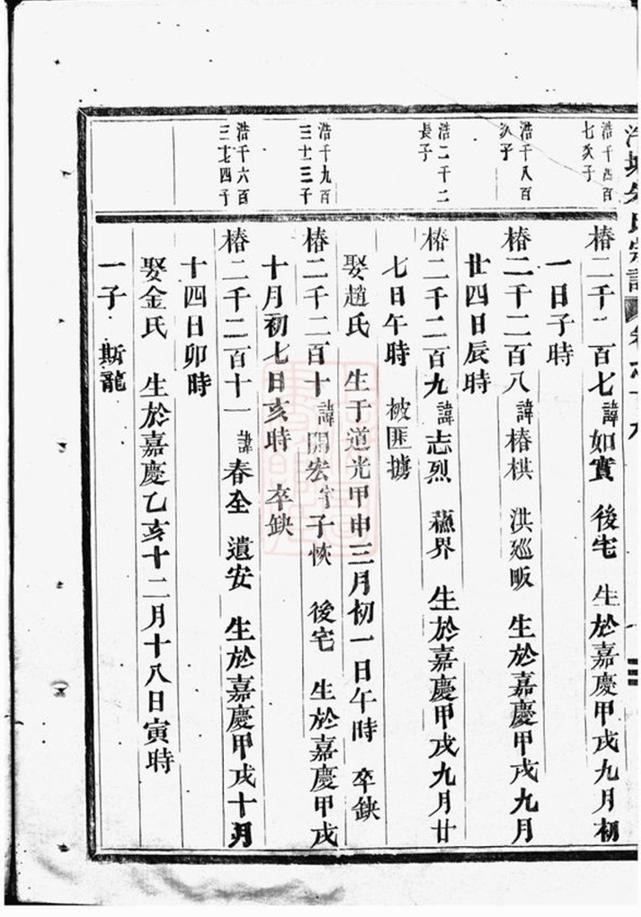 浩千四百
七次子
椿二千二百七諱如實 後宅 生於嘉慶甲戌九月初
一日子時
浩千八百
次子
椿二千二百八諱椿棋 洪廵畈 生於嘉慶甲戌九月
廿四日辰時
浩二千二
長子
椿二千二百九諱志烈 蘓界 生於嘉慶甲戌九月廿
七日午時 被匪擄
娶趙氏 生于道光甲申三月初一日午時 卒缺
浩千九百
三十三子
椿二千二百十諱開宏字子恢 後宅 生於嘉慶甲戌
十月初七日亥時 卒缺
浩千六百
椿二千二百十一諱春全 遺安 生於嘉慶甲戌十月
十四日卯時
娶金氏 生於嘉慶乙亥十二月十八日寅時
一子 斯龍